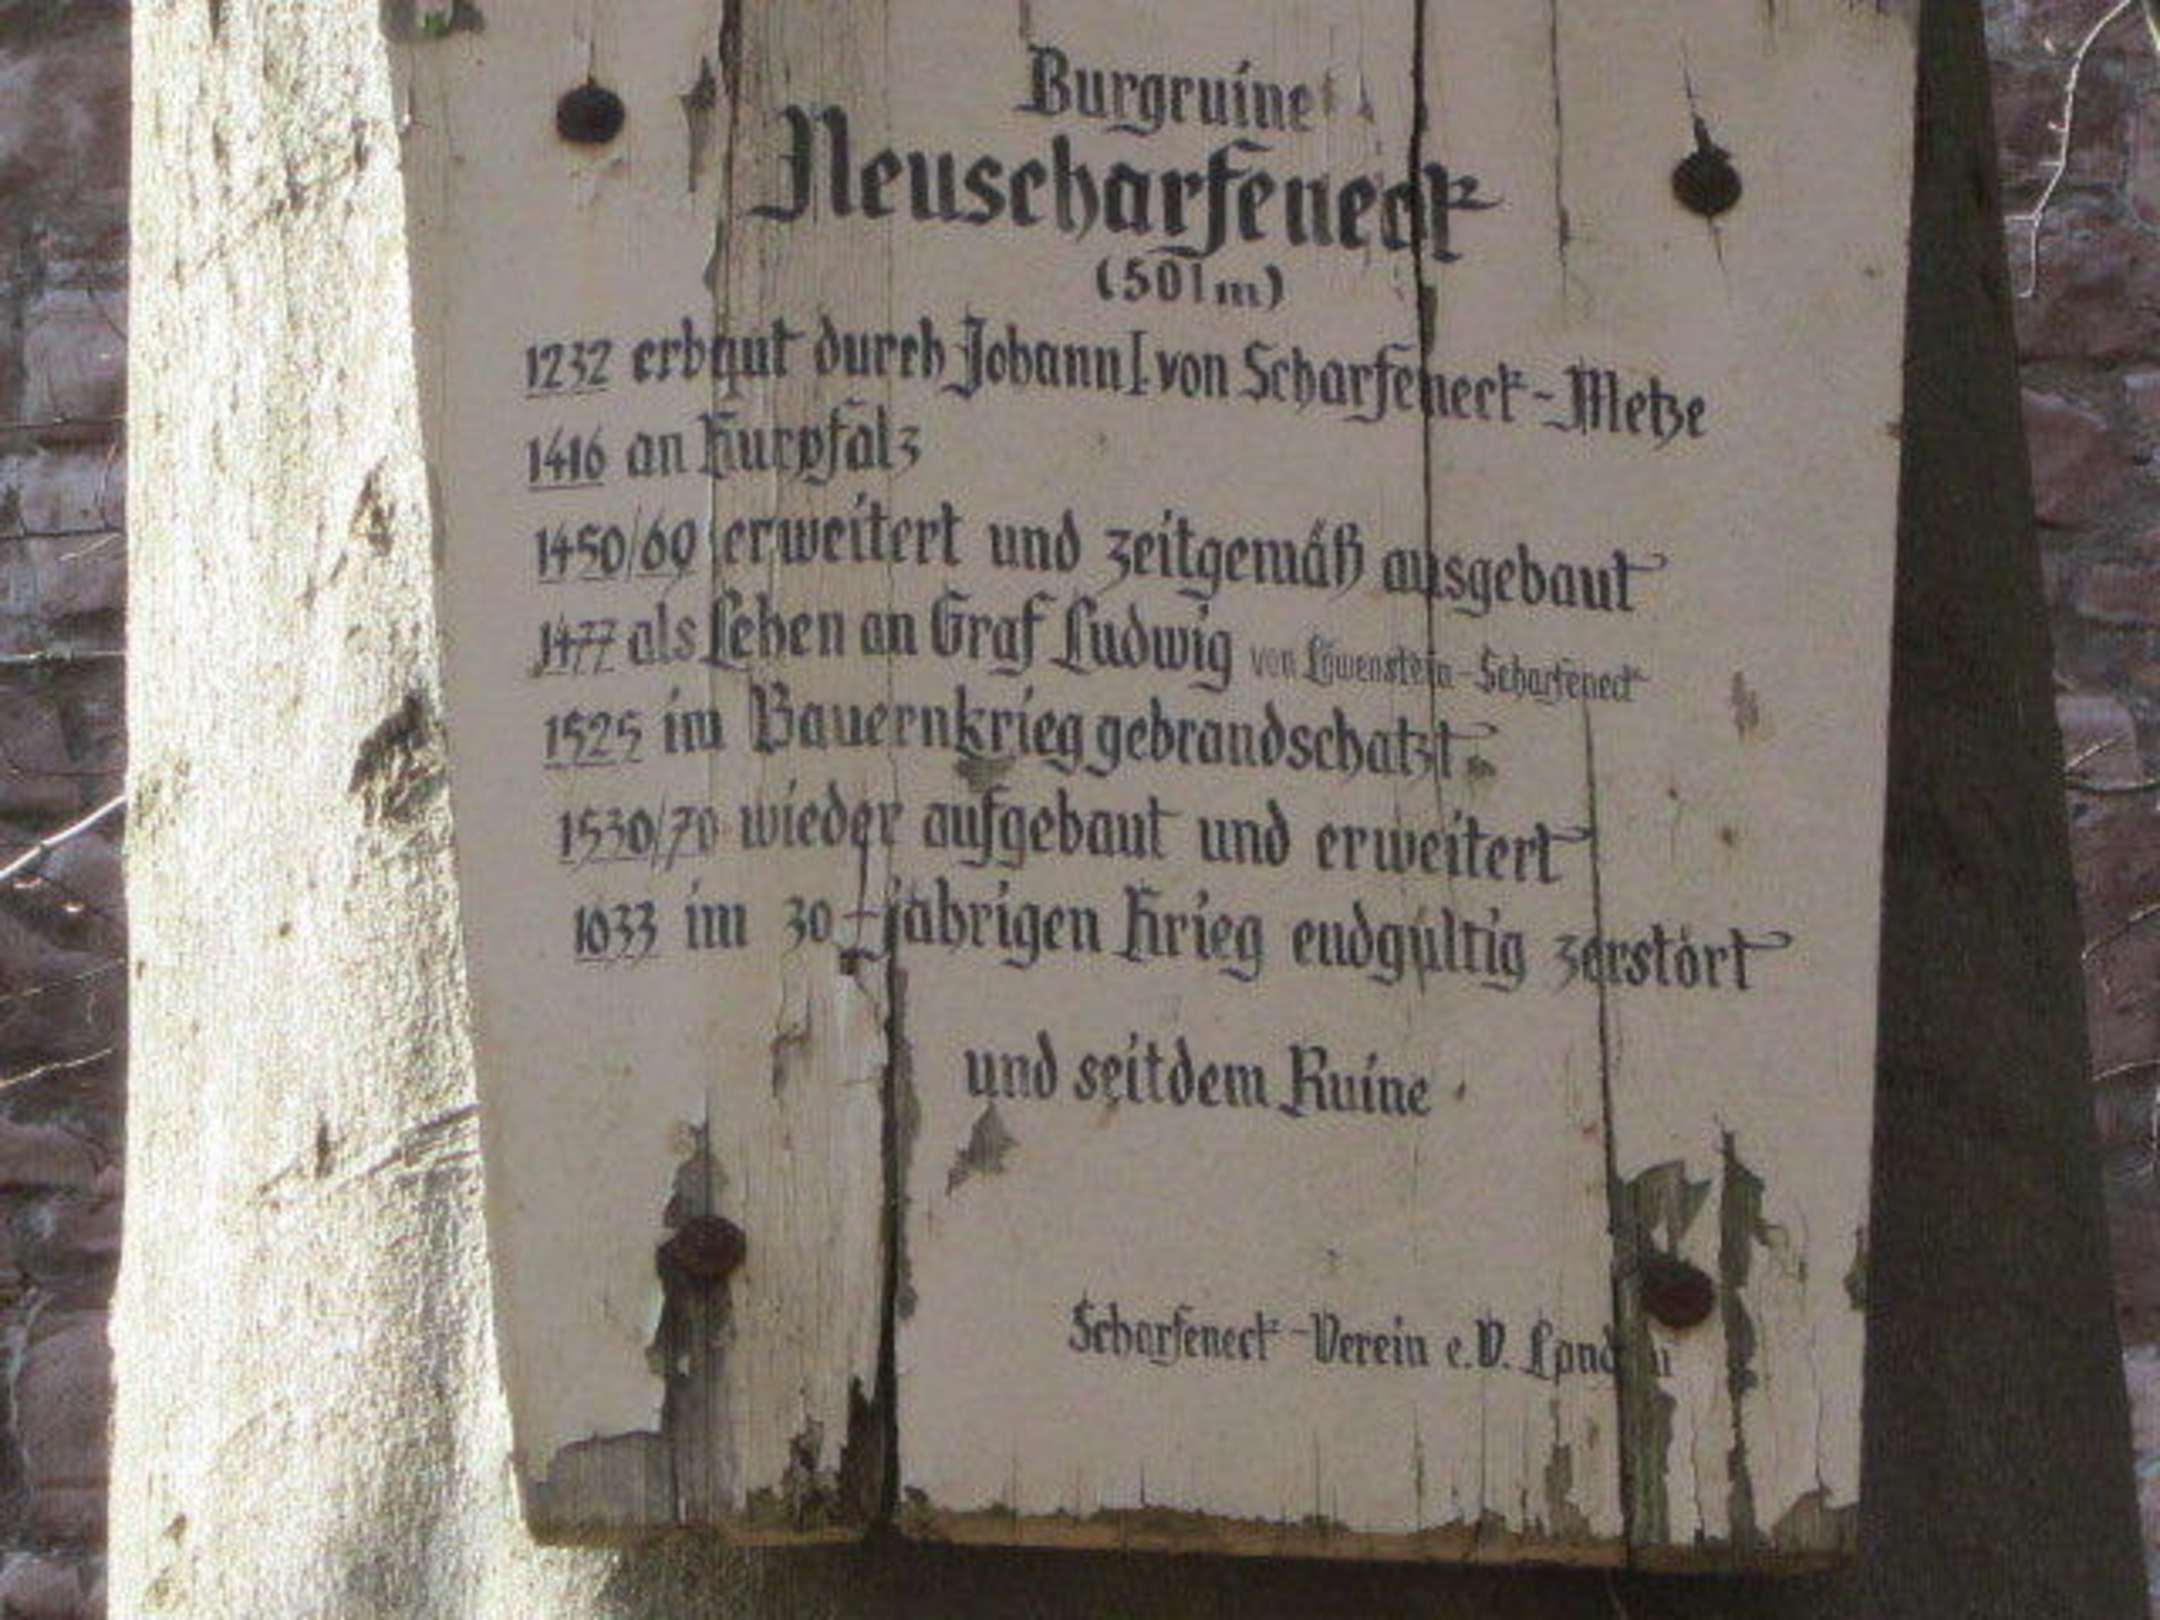 Burgruine
Neuscharfeneck
(501m)
1232 erbaut durch Johann I. von Scharfeneck-Metze
1416 an Kurpfalz
1450/60 erweitert und zeitgemäß ausgebaut
1477 als Lehen an Graf Ludwig von Löwenstein-Scharfeneck
1525 im Bauernkrieg gebrandschatzt
1530/70 wieder aufgebaut und erweitert
1633 im 30-jährigen Krieg endgültig zerstört
und seitdem Ruine
Scharfeneck-Verein e.V. Landau